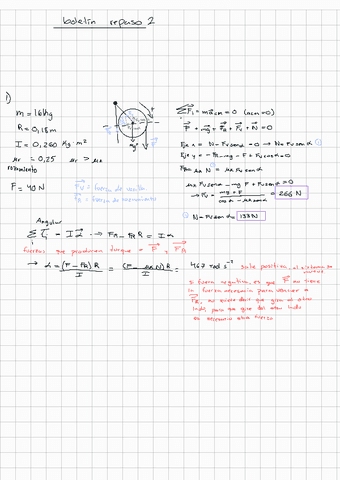 boletín repaso 2
1)
m = 16 kg
R = 0,18 m
I = 0,260 kg · m²
μr = 0,25 μr > μe
rozamiento
F = 40 N
F⃗v = fuerza de varilla
F⃗R = fuerza de rozamiento
ΣF⃗i = m a⃗cm = 0 (acm = 0)
F⃗ + mg⃗ + F⃗R + F⃗v + N⃗ = 0
Eje x = N - Fv sen α = 0 → N = Fv sen α ①
Eje y = - FR - mg - F + Fv cos α = 0
FR = μr N = μr Fv sen α
μr Fv sen α - mg - F + Fv cos α = 0
→ Fv = (mg + F) / (cos α - μr sen α) = 266 N
① N = Fv sen α = 133 N
Angular
Στ⃗i = Iα⃗ → FR - FR R = Iα
fuerzas que producen torque = F⃗ y F⃗R
→ α = (F - FR) R / I = (F - μr N) R / I = 4,67 rad s⁻² sale positiva, el sistema se
si fuera negativa es que F⃗ no tiene
la fuerza necesaria para vencer a
F⃗R, no quiere decir que gire al otro
lado, para que gire del otro lado
es necesario otra fuerza